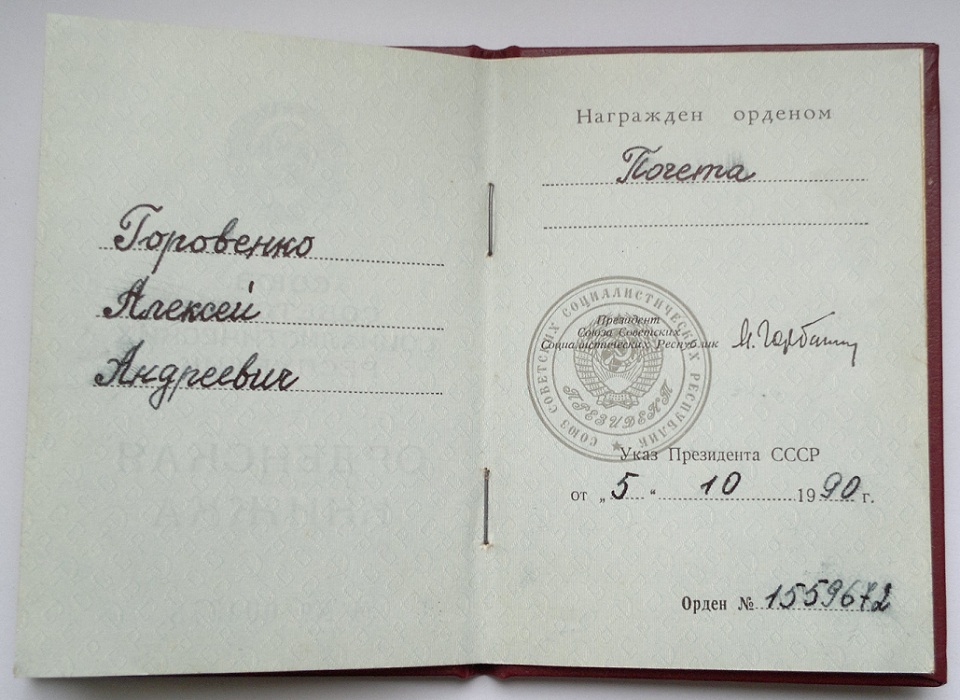 Горовенко
Алексей
Андреевич
Награжден орденом
Почета
СОЮЗ СОВЕТСКИХ СОЦИАЛИСТИЧЕСКИХ РЕСПУБЛИК
ПРЕЗИДЕНТ
Президент
Союза Советских
Социалистических Республик
М. Горбачев
Указ Президента СССР
от „5“ 10 1990 г.
Орден № 1559672